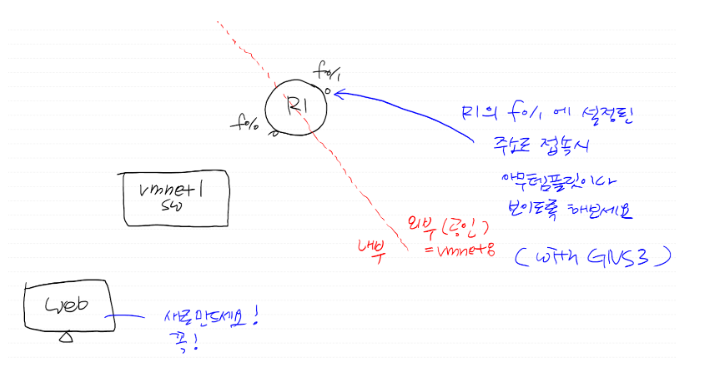 f0/1
R1
f0/0
R1의 f0/1 에 설정된
주소로 접속시
아무템플릿이나
보이도록 해보세요
(with GNS3)
vmnet1
SW
외부(공인)
=vmnet8
내부
web
새로만드세요!
꼭!